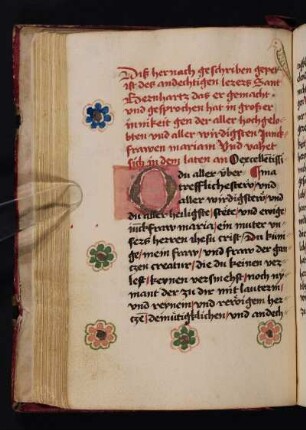 Diß her nach geschriben gepet
ist des andechtigen lerers Sant
Bernhartz das er gemacht
und gesprochen hat in grosser
innikeit gen der aller hochgelo-
bten und aller wirdigsten Junck-
frawen mariam Und vahet
sich in dem laten an O excellētissi
O du aller über ma
trefflichestew und
aller wirdigstew und
du aller heiligste / stete / und ewige
iunckfraw maria / ein muter un
sers herren ihesu cristi / Du küni
ge / mein fraw / und fraw der gan
czen creatur / die du keinen ver
lest / keynen versmehst / noch ny
mant der zu dir mit lauterm /
und reynem / und rewigem her
tze / demütigklichen / und andech